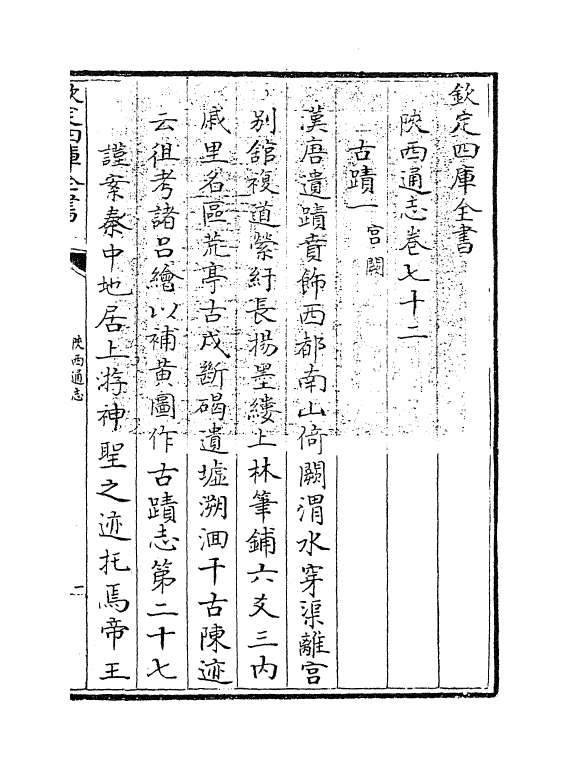 欽定四庫全書
陜西通志卷七十二
古蹟一 宮闕
漢唐遺蹟賁飾西都南山倚闕渭水穿渠離宮
别舘複道縈紆長揚墨縷上林筆鋪六爻三内
戚里名區荒亭古戍斷碣遺墟溯洄千古陳迹
云徂考諸呂繪以補黄圖作古蹟志第二十七
謹案秦中地居上游神聖之迹托焉帝王
欽定四庫全書
陜西通志